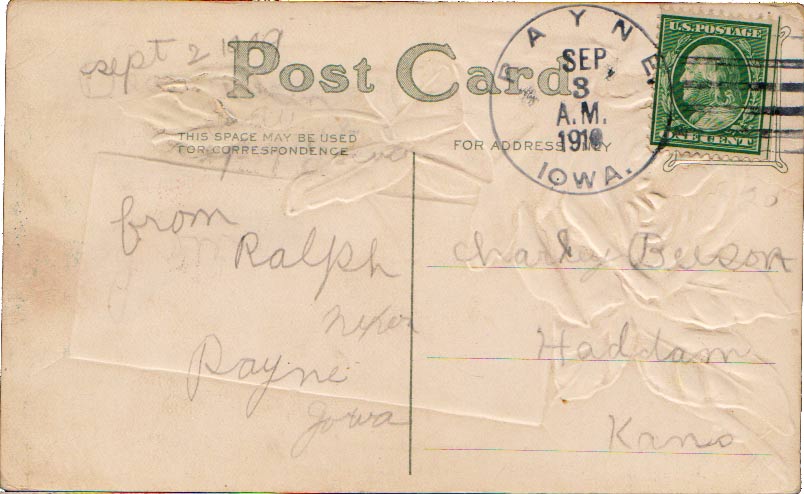 sept 2
Post Card
THIS SPACE MAY BE USED
FOR CORRESPONDENCE
FOR ADDRESS ONLY
PAYNE
SEP
3
A.M.
1910
IOWA.
U.S. POSTAGE
ONE CENT
from
Ralph
Nixon
Payne
Iowa
Charley Beeson
Haddam
Kans